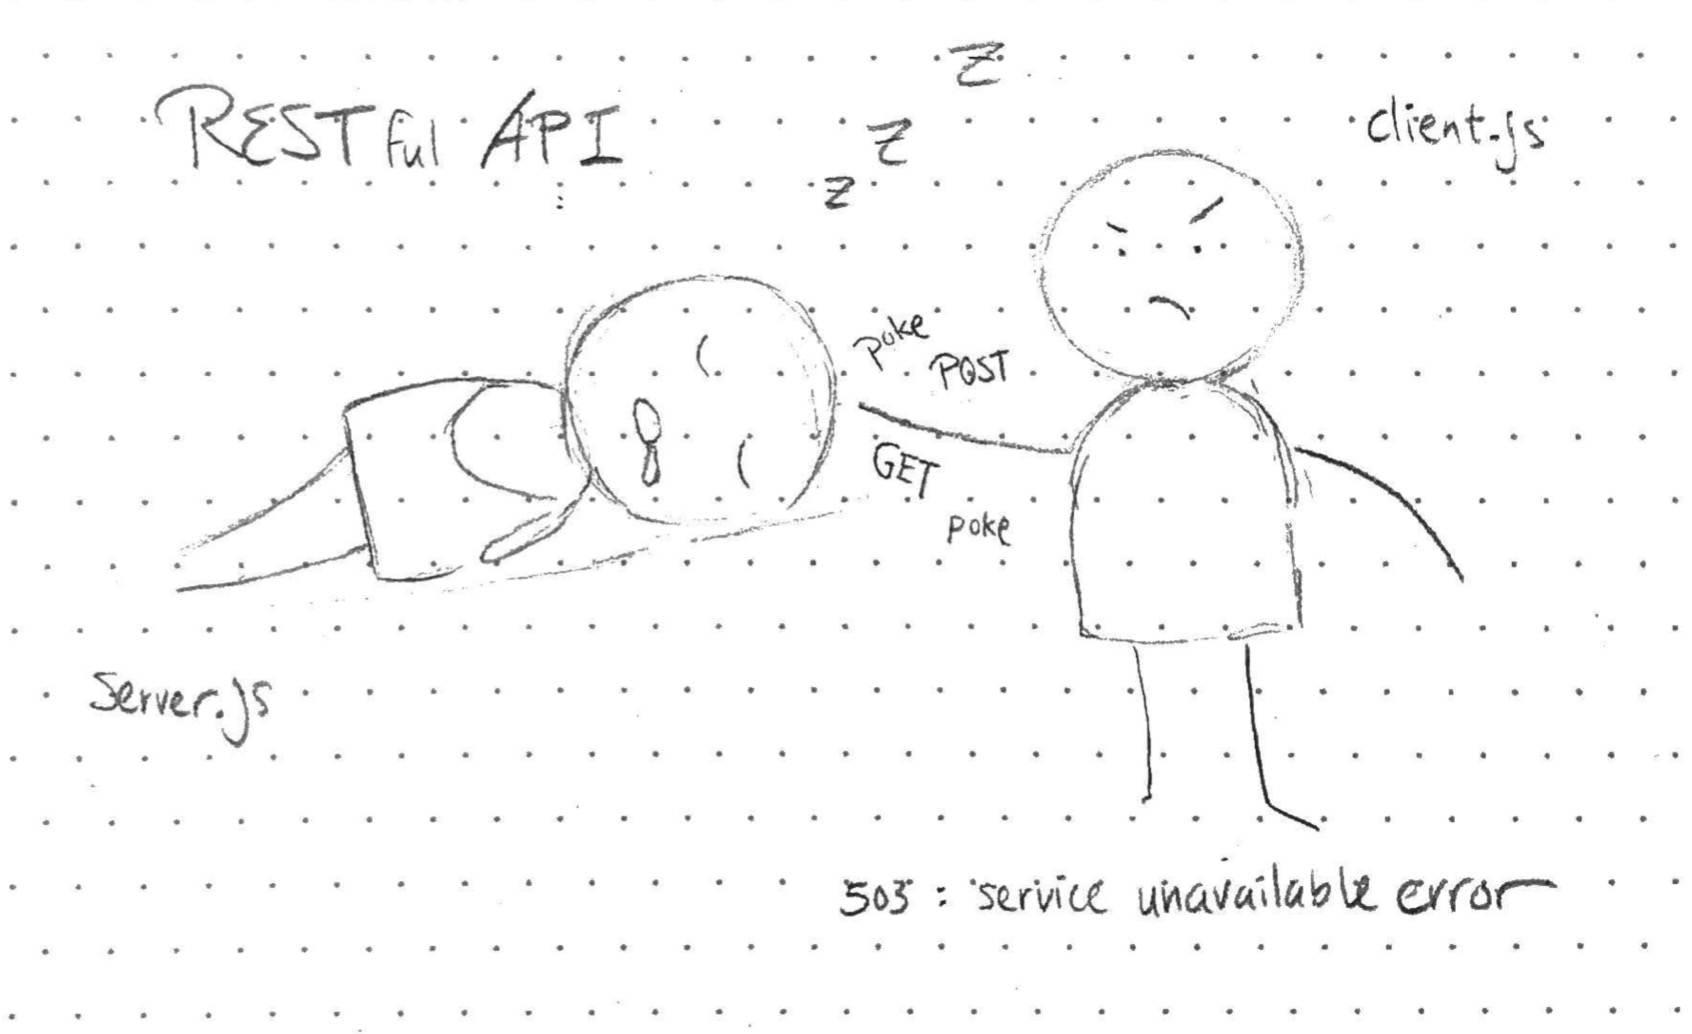 RESTful API
z
z
z
client.js
poke
POST
GET
poke
Server.js
503 : service unavailable error